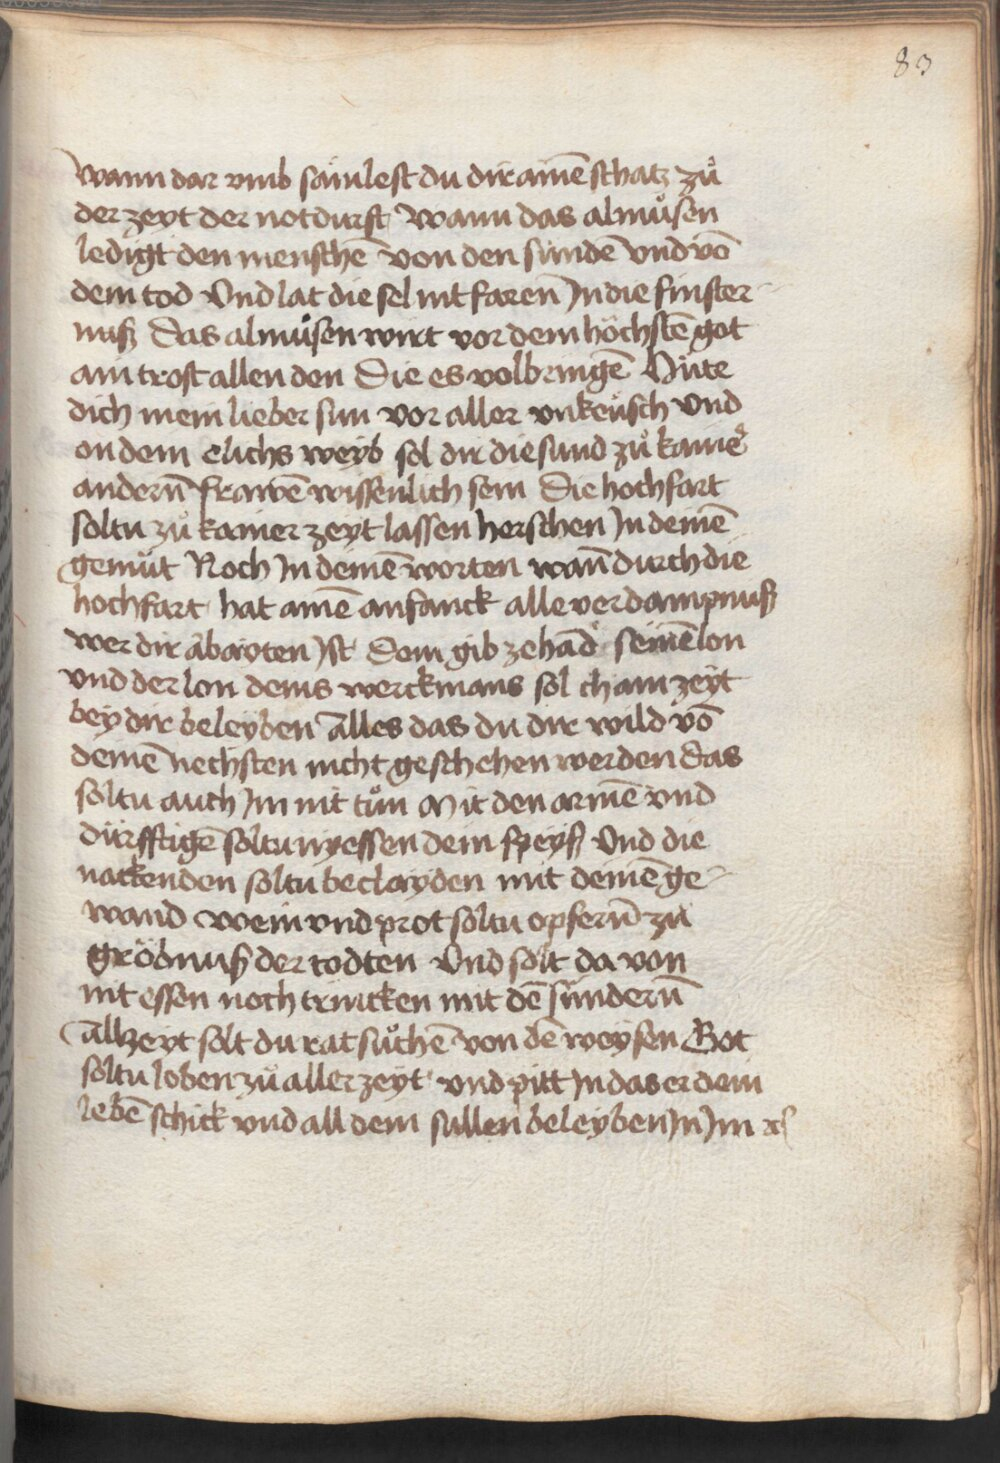 83
wann dar vmb sa᷈mlest du dir ainē schatz zů
der zeyt der notdurft Wann das almůsen
ledigt den menschē von den sundē vnd võ
dem tod Vnd lat die sel nit faren Jn die finster-
nuß Das almůsen wirt vor dem höchstē got
ain trost allen den Die es volbringē Hüte
dich mein lieber sun vor aller vnkeůsch Vnd
on dem elichs weyb sol dir die sund zů kainer
andern̄ frawē wissenlich sein Die hochfart
soltu zů kainer zeyt lassen herschen Jn deinē
gemüt Noch Jn deinē worten wañ durch die
hochfart hat ainē anfanck alle verdampnuß
wer dir arbayten Jst Dem gib zehãd seinē lon
vnd der lon deins werckmans sol chain zeyt
bey dir beleyben Alles das du dir wild võ
deinē nechsten nicht geschehen werden das
soltu auch Jm nit tůn Mit den armē vnd
dürfftigē soltu nyessen dein speyß Vnd die
nackenden soltu beclayden mit deinē ge-
wand Wein vnd prot soltu opfern̄ zu
gröbnuß der todten Vnd solt da von
nit essen noch trincken mit dē sündern̄
Allzeyt solt du rat sůchē von dē weysen Got
soltu loben zů aller zeyt vnd pitt Jn das er dein
lebē schick vnd all dein sallen beleyben Jn Jm